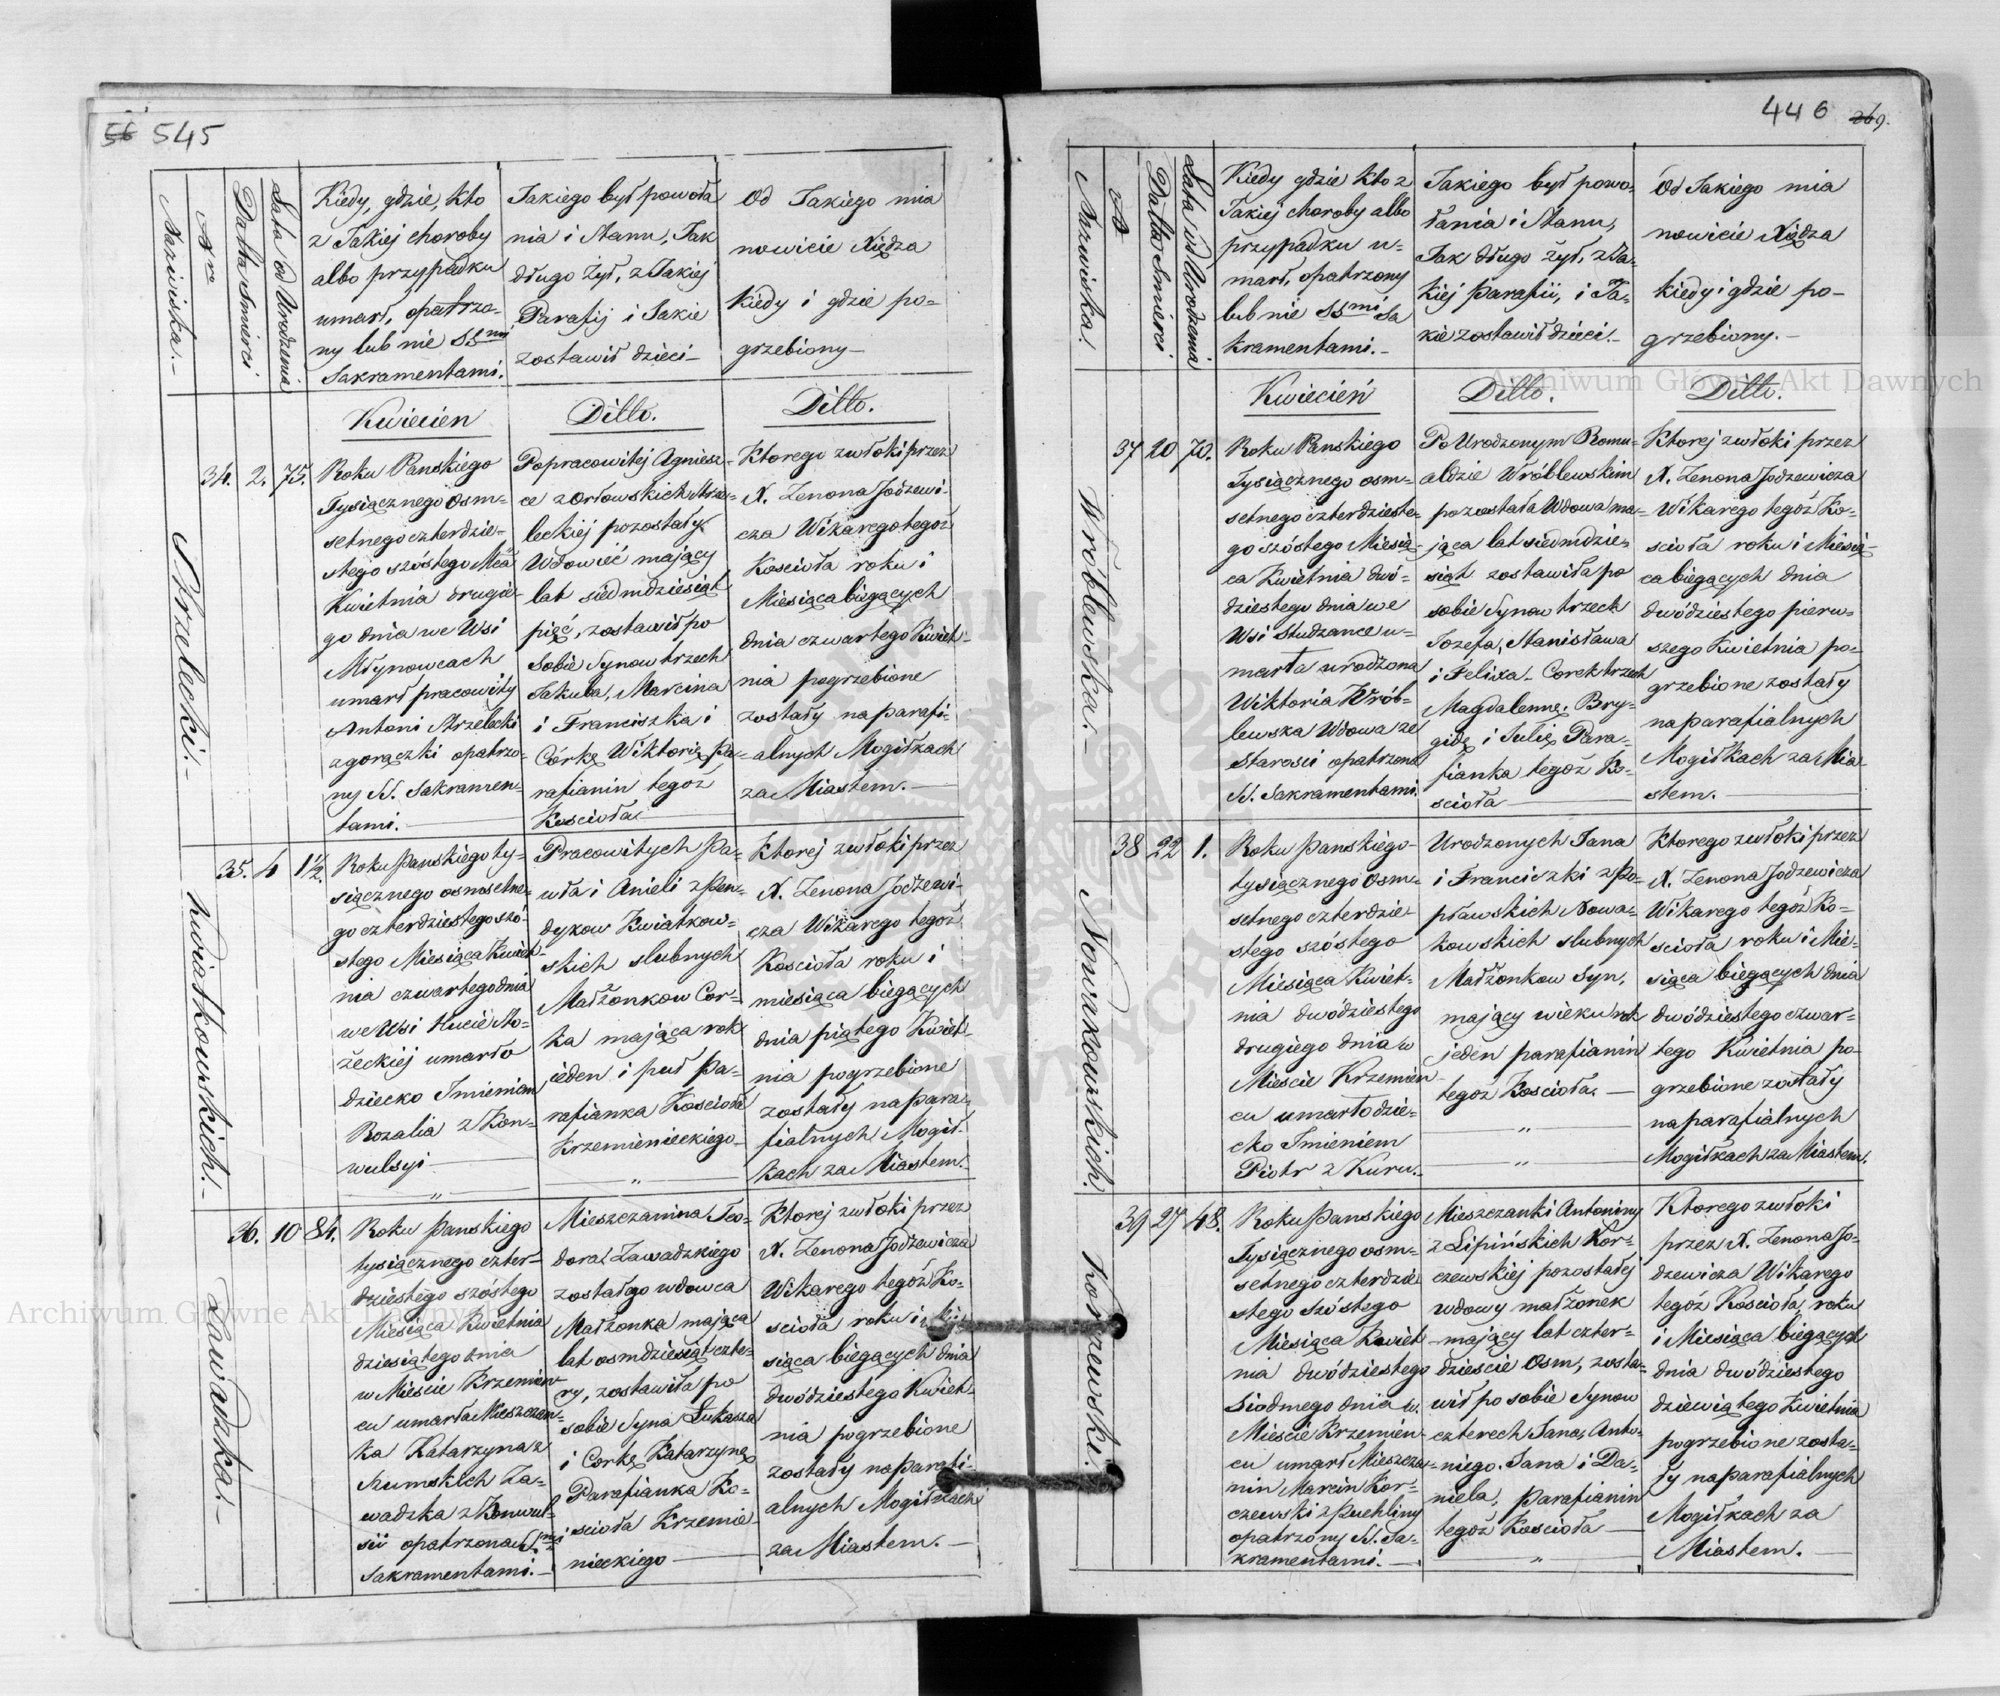 56 545
Nazwiska.
Nro
Datta Smierci
Lata od Urodzenia
Kiedy, gdzie, kto
z Jakiej choroby
albo przypadku
umarł, opatrzo-
ny lub nie SSmi
Sakramentami.
Jakiego był powoła
nia i Stanu, Jak
długo żył, z Jakiej
Parafij i Jakie
zostawił dzieci
Od Jakiego mia
nowicie Xiędza
kiedy i gdzie po-
grzebiony
Kwiecien
Ditto.
Ditto.
Strzelecki.
34. 2. 75.
Roku Panskiego
Tysiącznego osm-
setnego czterdzie-
stego szóstego Mca
Kwietnia drugie-
go dnia we Wsi
Młynowcach
umarł pracowity
Antoni Strzelecki
z gorączki opatrzo-
ny SS. Sakramen-
tami.
Po pracowitej Agniesz-
ce z Orłowskich Strze-
leckiej pozostały
Wdowiec mający
lat siedmdziesiąt
pięć, zostawił po
sobie Synow trzech
Jakuba, Marcina
i Franciszka i
Córkę Wiktorię pa-
rafianin tegoż
Koscioła
Ktorego zwłoki przez
X. Zenona Jodzewi-
cza Wikarego tegoż
Koscioła roku i
Miesiąca biegących
dnia czwartego Kwiet-
nia pogrzebione
zostały na parafi-
alnych Mogiłkach
za Miastem.
Kwiatkowskich.
35. 4 1½.
Roku Panskiego ty-
siącznego osmsetne-
go czterdziestego szó-
stego Miesiąca Kwiet-
nia czwartego dnia
we Wsi Hucie Sto-
żeckiej umarło
dziecko Imieniem
Rozalia z Kon-
wulsyi
"
Pracowitych Pa-
wła i Anieli z Pen-
dykow Kwiatkow-
skich slubnych
Małżonkow Cor-
ka mająca rok
jeden i puł Pa-
rafianka Koscioła
Krzemienieckiego
"
Ktorej zwłoki przez
X. Zenona Jodzewi-
cza Wikarego tegoż
Koscioła roku i
miesiąca biegących
dnia piątego Kwiet-
nia pogrzebione
zostały na para-
fialnych Mogił-
kach za Miastem.
Zawadzka.
36. 10 84.
Roku Panskiego
tysiącznego czter-
dziestego szóstego
Miesiąca Kwietnia
dziesiątego dnia
w Miescie Krzemień-
cu umarła Mieszczan-
ka Katarzyna z
Szumskich Za-
wadzka z Konwul-
sii opatrzona SSmi
Sakramentami.
Mieszczanina Teo-
dora Zawadzkiego
zostałego wdowca
Małżonka mająca
lat osmdziesiąt czte-
ry, zostawiła po
sobie Syna Łukasza
i Corkę Katarzynę
Parafianka Ko-
scioła Krzemie
nieckiego
Ktorej zwłoki przez
X. Zenona Jodzewicza
Wikarego tegoż Ko-
scioła roku i Mie
siąca biegących dnia
dwódziestego Kwiet-
nia pogrzebione
zostały na parafi-
alnych Mogiłkach
za Miastem.
446 269.
Nazwiska.
N
Datta Smierci
Lata od Urodzenia
Kiedy gdzie Kto z
Jakiej choroby albo
przypadku u-
marł, opatrzony
lub nie SSmi Sa
kramentami.
Jakiego był powo-
łania i Stanu,
Jak długo żył, z Ja-
kiej Parafii, i Ja-
kie zostawił dzieci.
Od Jakiego mia
nowicie Xiędza
kiedy i gdzie po-
grzebiony.
Kwiecień
Ditto.
Ditto.
Wróblewska.
37 20 70.
Roku Panskiego
Tysiącznego osm-
setnego czterdzieste-
go szóstego Miesią-
ca Kwietnia dwó-
dziestego dnia we
Wsi Studzance u-
marła urodzona
Wiktoria Wrób-
lewska Wdowa ze
Starosci opatrzona
SS. Sakramentami.
Po Urodzonym Romu-
aldzie Wróblewskim
pozostała Wdowa ma-
jąca lat siedmdzie-
siąt zostawiła po
sobie Synow trzech
Jozefa, Stanisława
i Felixa. Corek trzech
Magdalennę, Bry-
gidę i Julię Para-
fianka tegoż Ko-
scioła
Ktorej zwłoki przez
X. Zenona Jodzewicza
Wikarego tegoż Ko-
scioła roku i Miesią-
ca biegących dnia
dwódziestego pierw-
szego Kwietnia po-
grzebione zostały
na parafialnych
Mogiłkach za Mia-
stem.
Nowakowskich.
38 22 1.
Roku Panskiego
tysiącznego Osm-
setnego czterdzie-
stego szóstego
Miesiąca Kwiet-
nia dwódziestego
drugiego dnia w
Miescie Krzemień-
cu umarło dzie-
cko Imieniem
Piotr z Kuru.
Urodzonych Jana
i Franciszki z Po-
pławskich Nowa-
kowskich slubnych
Małżonkow Syn,
mający wieku rok
jeden parafianin
tegoż Koscioła.
"
"
Ktorego zwłoki przez
X. Zenona Jodzewicza
Wikarego tegoż Ko-
scioła roku i Mie-
siąca biegących dnia
dwódziestego czwar-
tego Kwietnia po-
grzebione zostały
na parafialnych
Mogiłkach za Miastem.
Korzewski.
39 27 48.
Roku Panskiego
Tysiącznego osm-
setnego czterdzie
stego szóstego
Miesiąca Kwiet
nia dwódziestego
Siodmego dnia w.
Miescie Krzemień-
cu umarł Mieszcza-
nin Marcin Kor-
czewski z Puchliny
opatrzony SS. Sa-
kramentami.
Mieszczanki Antoniny
z Lipińskich Kor-
czewskiej pozostałej
wdowy małżonek
mający lat czter-
dziescie Osm, zosta-
wił po sobie Synow
czterech Jana, Anto-
niego. Jana i Da-
niela, Parafianin
tegoż Koscioła
"
Ktorego zwłoki
przez X. Zenona Jo-
dzewicza Wikarego
tegoż Koscioła, roku
i Miesiąca biegących
dnia dwódziestego
dziewiątego Kwietnia
pogrzebione zosta-
ły na parafialnych
Mogiłkach za
Miastem.
Archiwum Główne Akt Dawnych
Archiwum Główne Akt Dawnych